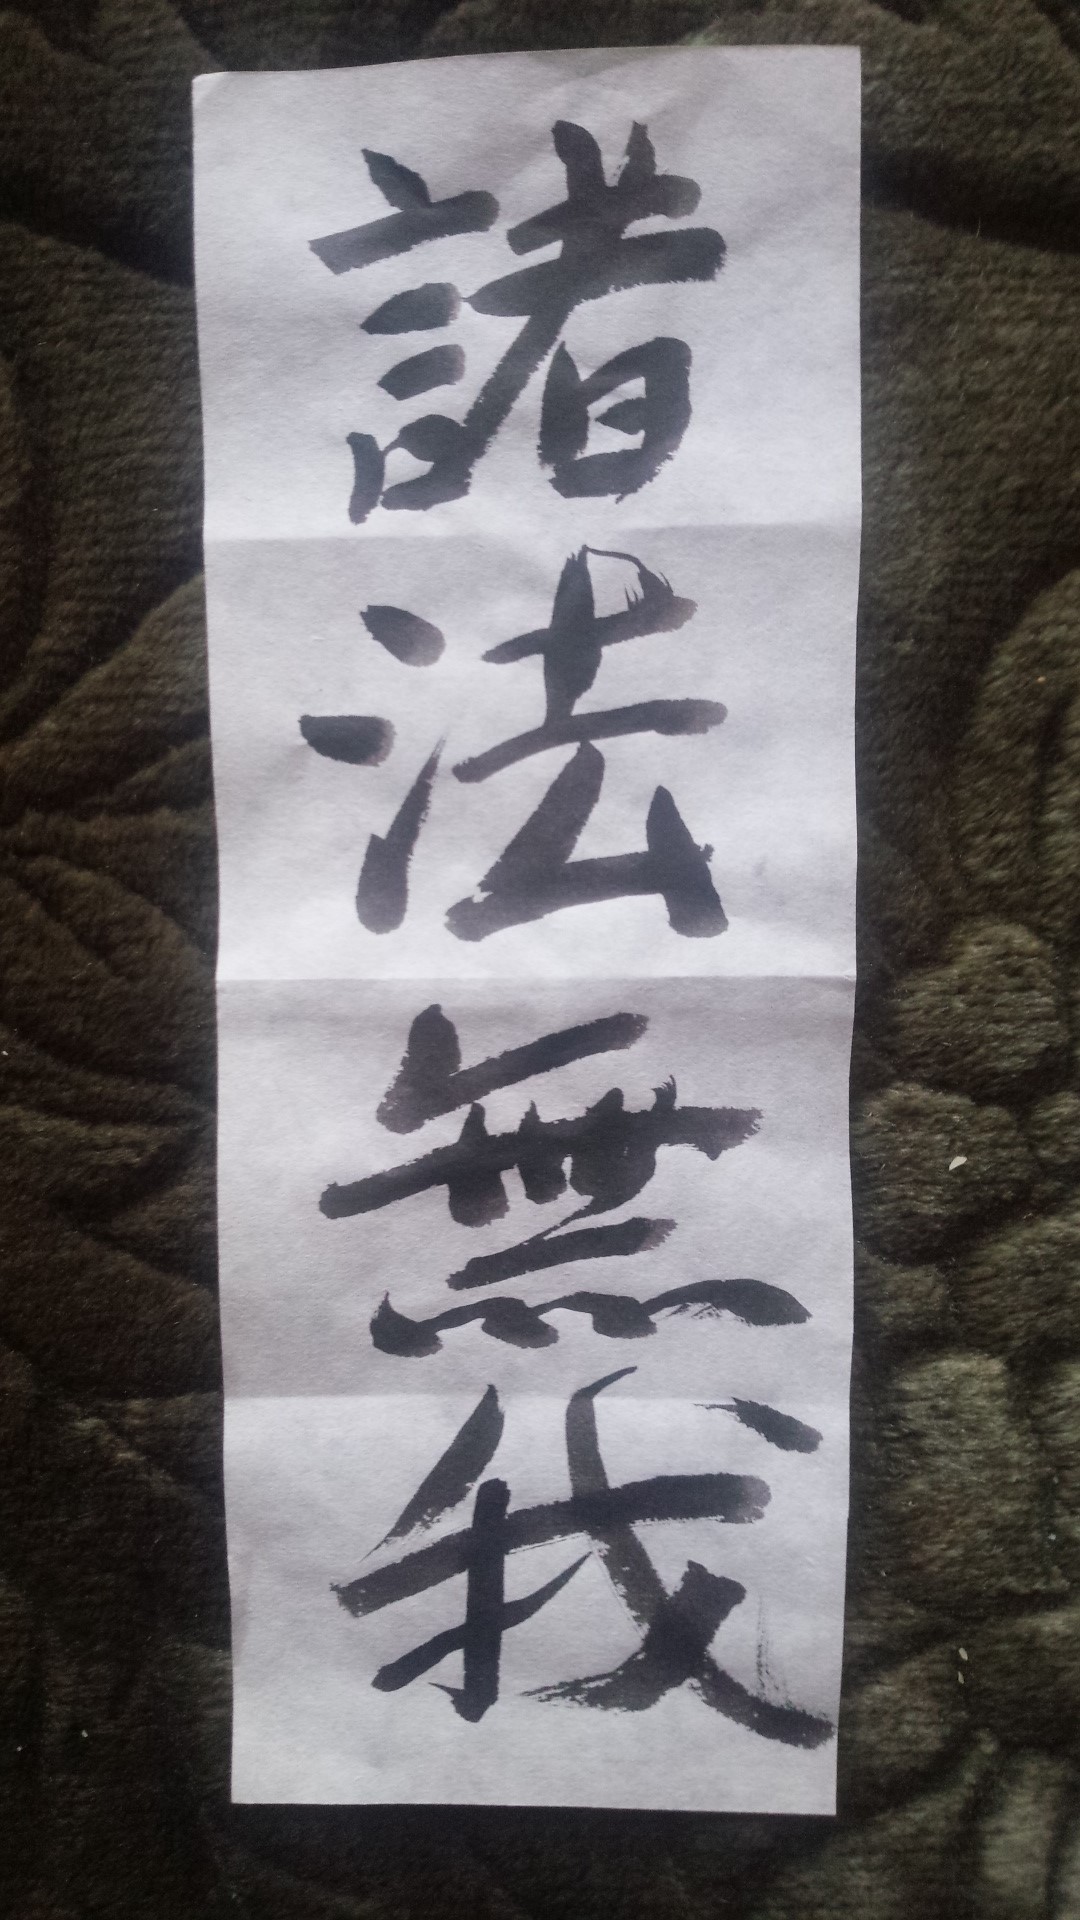 諸法無我